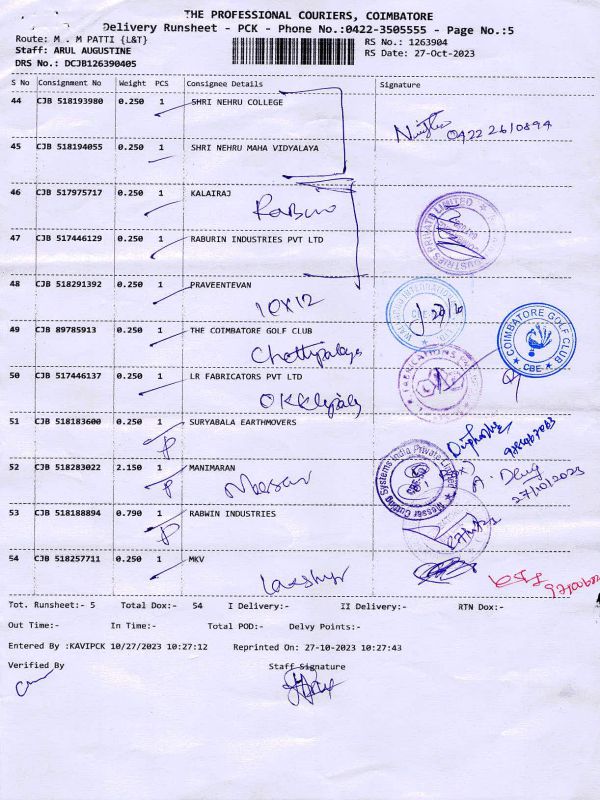 THE PROFESSIONAL COURIERS, COIMBATORE
Delivery Runsheet - PCK - Phone No.:0422-3505555 - Page No.:5
Route: M . M PATTI {L&T}
RS No.: 1263904
Staff: ARUL AUGUSTINE
RS Date: 27-Oct-2023
DRS No.: DCJB126390405
S No Consignment No Weight PCS Consignee Details Signature
44 CJB 518193980 0.250 1 SHRI NEHRU COLLEGE
0422 2610894
45 CJB 518194055 0.250 1 SHRI NEHRU MAHA VIDYALAYA
46 CJB 517975717 0.250 1 KALAIRAJ
47 CJB 517446129 0.250 1 RABURIN INDUSTRIES PVT LTD
48 CJB 518291392 0.250 1 PRAVEENTEVAN
10X12
49 CJB 89785913 0.250 1 THE COIMBATORE GOLF CLUB
COIMBATORE GOLF CLUB
CBE
50 CJB 517446137 0.250 1 LR FABRICATORS PVT LTD
51 CJB 518183600 0.250 1 SURYABALA EARTHMOVERS
52 CJB 518283022 2.150 1 MANIMARAN
Messer Cutting Systems India Private Limited
27/10/2023
53 CJB 518188894 0.790 1 RABWIN INDUSTRIES
54 CJB 518257711 0.250 1 MKV
Tot. Runsheet:- 5 Total Dox:- 54 I Delivery:- II Delivery:- RTN Dox:-
Out Time:- In Time:- Total POD:- Delvy Points:-
Entered By :KAVIPCK 10/27/2023 10:27:12 Reprinted On: 27-10-2023 10:27:43
Verified By Staff Signature